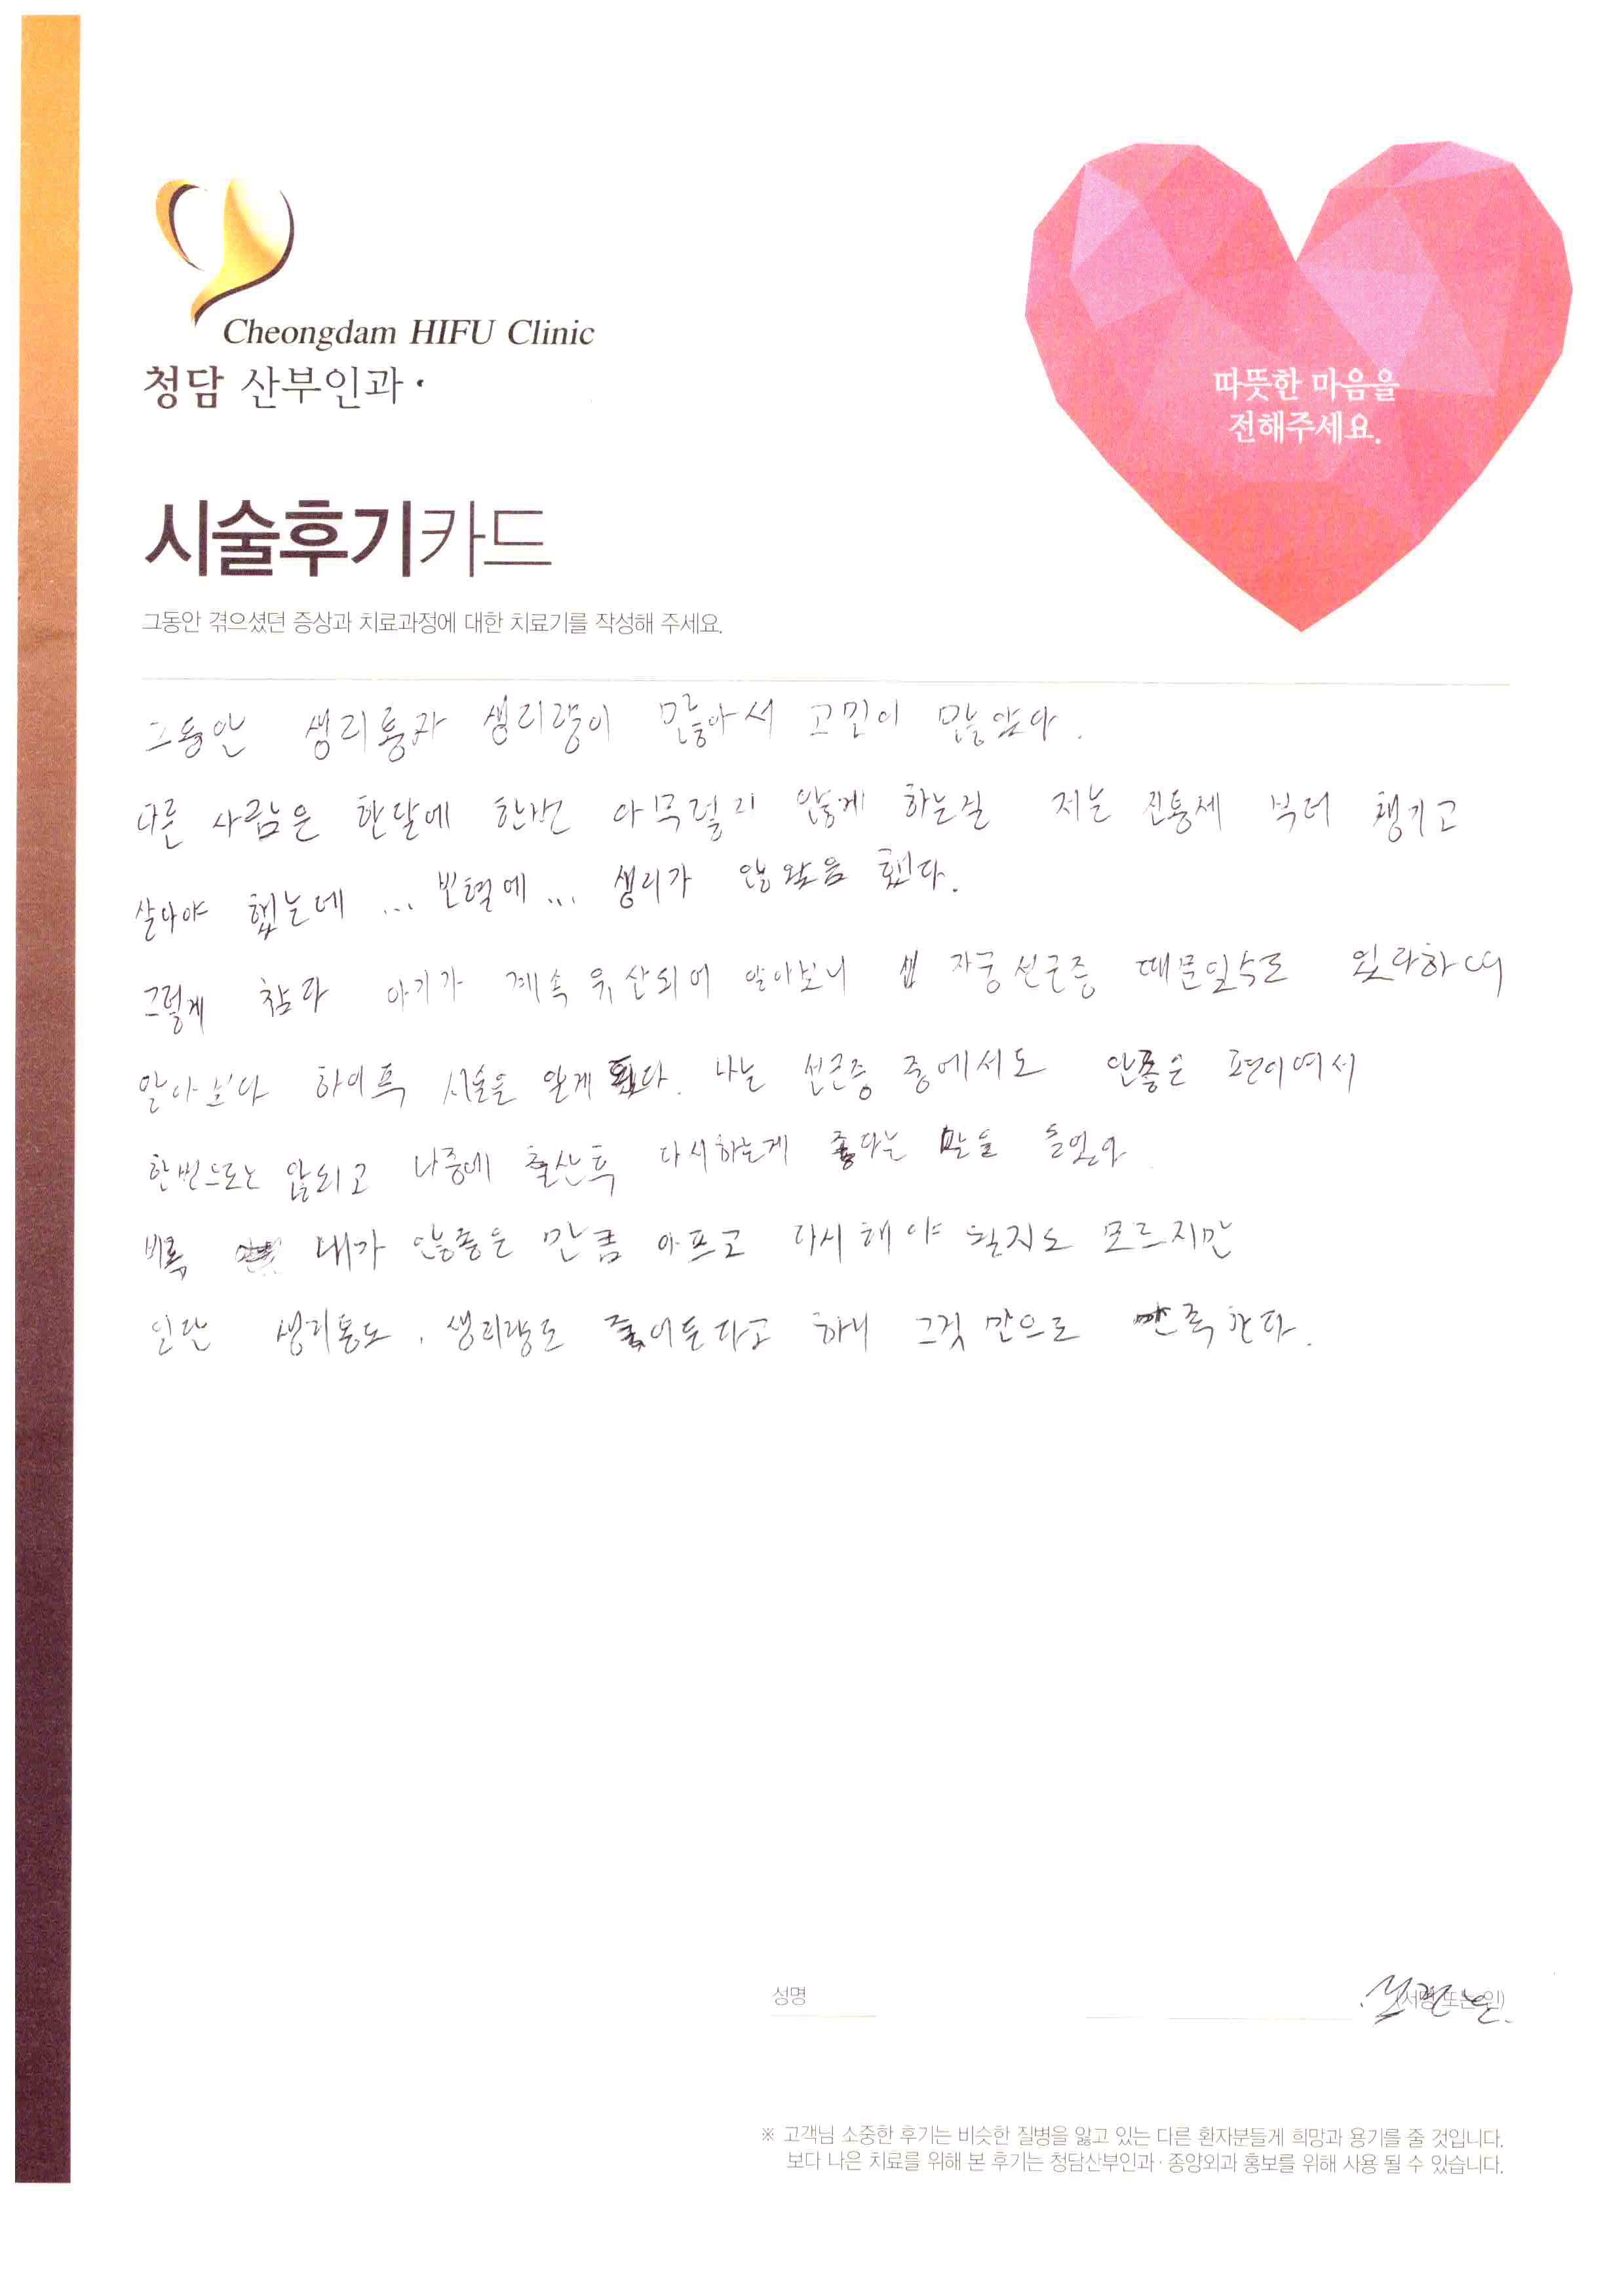 Cheongdam HIFU Clinic
청담 산부인과·
따뜻한 마음을
전해주세요.
시술후기카드
그동안 겪으셨던 증상과 치료과정에 대한 치료기를 작성해 주세요.
그동안 생리통과 생리량이 많아서 고민이 많았다.
다른 사람은 한달에 한번 아무렇지 않게 하는걸 저는 진통제 부터 챙기고
살아야 했는데 ... 빈혈에 ... 생리가 않왔음 했다.
그렇게 참다 아기가 계속 유산되어 알아보니 자궁선근증 때문일수도 있다하여
알아보다 하이푸 시술을 알게 됐다. 나는 선근증 중에서도 안좋은 편이여서
한번으로는 않되고 나중에 출산후 다시하는게 좋다는 말을 들었다
비록 내가 않좋은 만큼 아프고 다시 해야 될지도 모르지만
일단 생리통도, 생리량도 줄어든다고 하니 그것 만으로 만족한다.
성명
(서명 또는 인)
※ 고객님 소중한 후기는 비슷한 질병을 앓고 있는 다른 환자분들게 희망과 용기를 줄 것입니다.
보다 나은 치료를 위해 본 후기는 청담산부인과·종양외과 홍보를 위해 사용 될 수 있습니다.